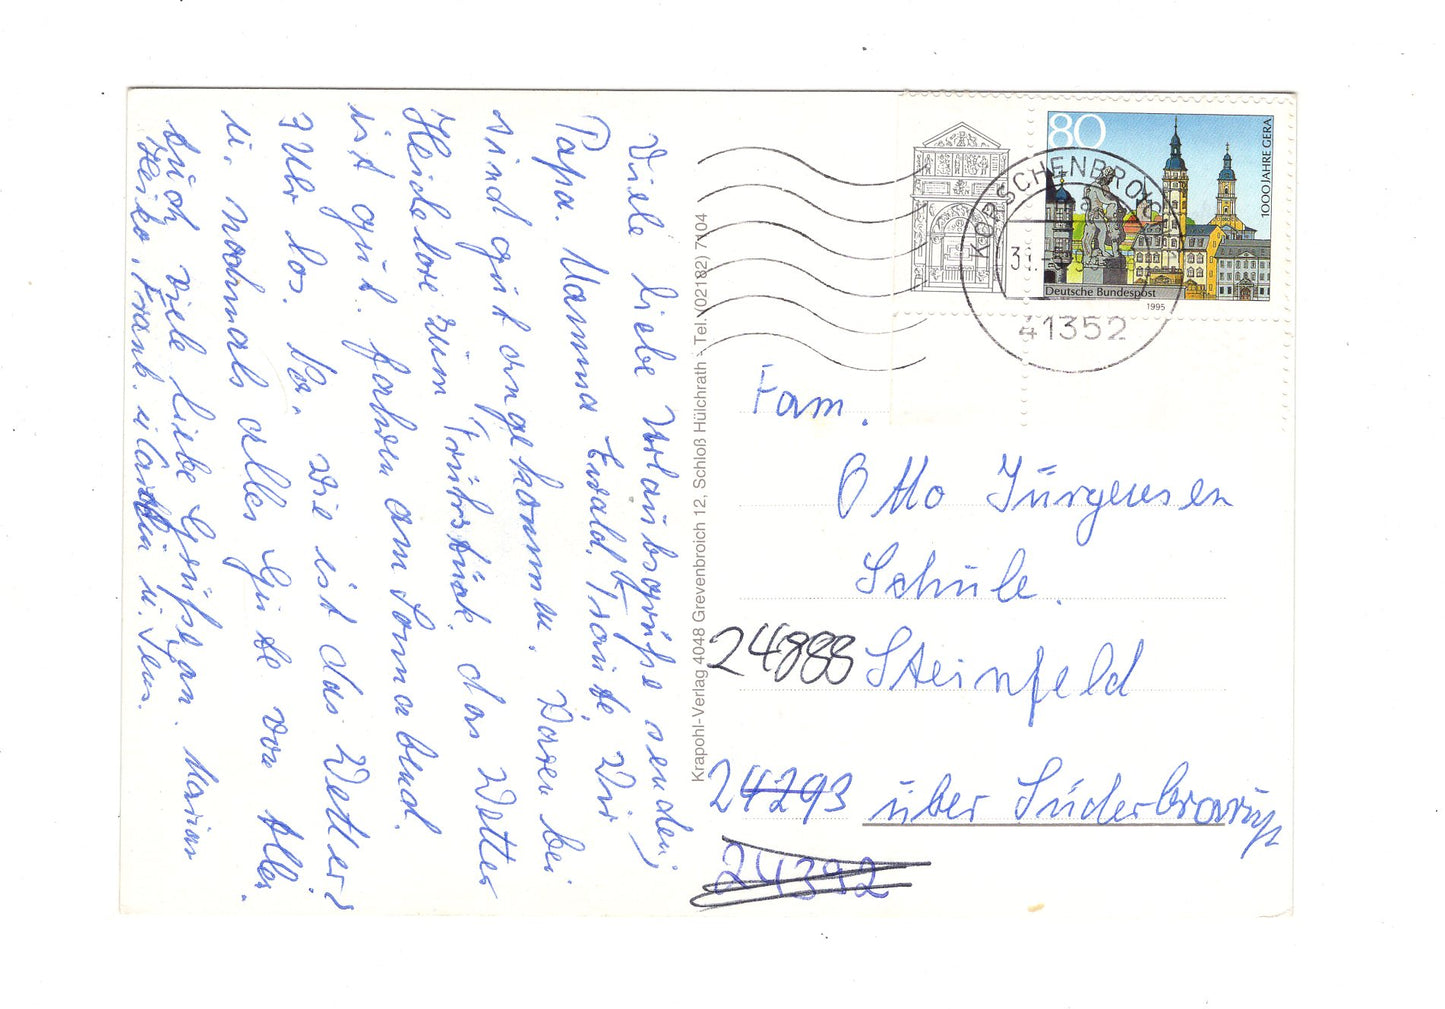 Viele liebe Urlaubsgrüße senden
Papa. Mamma Ewald, Traute. Wir
sind gut angekommen. Waren bei
Heidelore zum Frühstück. das Wetter
ist gut. fahren am Sonnabend.
7 Uhr los. Na, wie ist das Wetter?
u. nochmals alles Gute von Allen.
Euch viele liebe Grüße an.
Heiko, Frank. u. u. Jens.
Krapohl-Verlag 4048 Grevenbroich 12, Schloß Hülchrath - Tel. (02182) 7104
80
1000 JAHRE GERA
Deutsche Bundespost
1995
KORSCHENBROICH
41352
Fam.
Otto Jürgensen
Schule.
24888 Steinfeld
24293 über Süderbrarup
24392